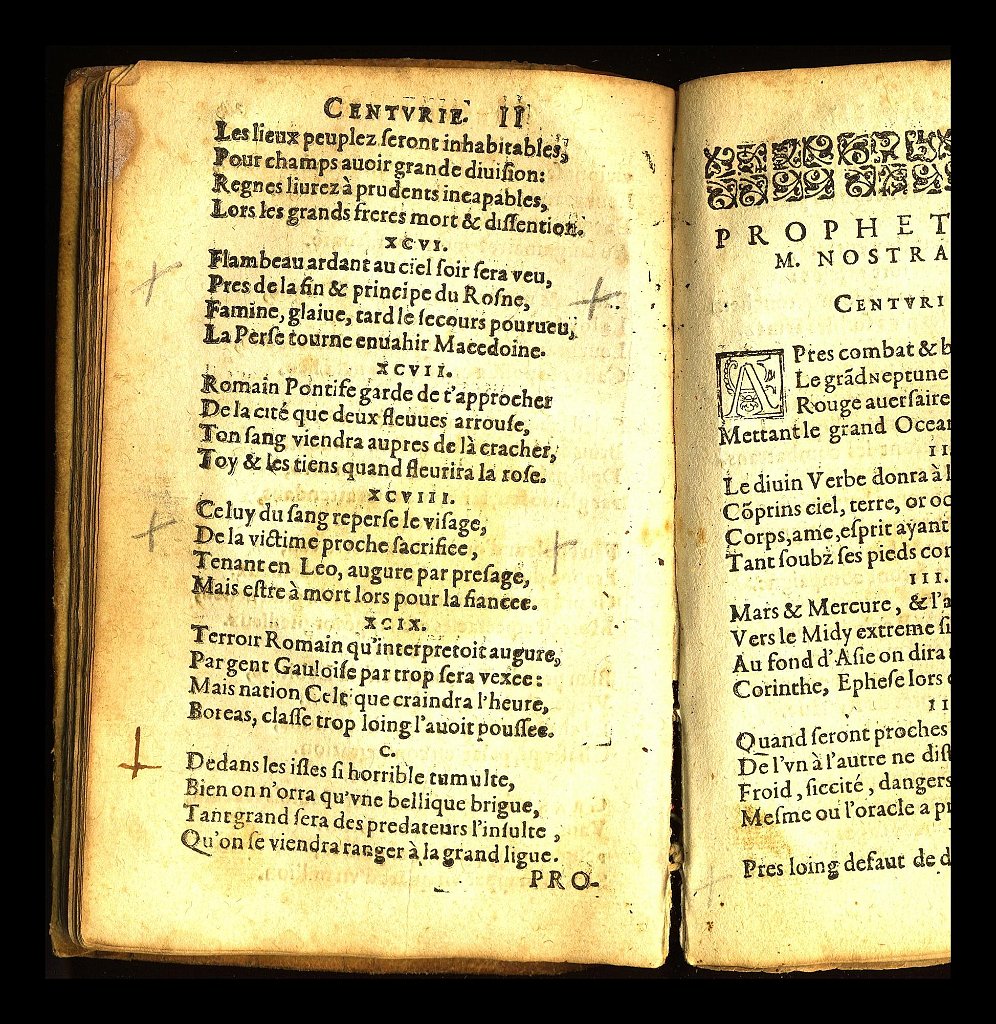 CENTVRIE. II
Les lieux peuplez ſeront inhabitables,
Pour champs auoir grande diuiſion:
Regnes liurez à prudents incapables,
Lors les grands freres mort & diſſention.
XCVI.
Flambeau ardant au ciel ſoir ſera veu,
Pres de la fin & principe du Roſne,
Famine, glaiue, tard le ſecours pourueu,
La Perſe tourne enuahir Macedoine.
XCVII.
Romain Pontife garde de t'approcher
De la cité que deux fleuues arrouſe,
Ton ſang viendra aupres de là cracher,
Toy & les tiens quand fleurira la roſe.
XCVIII.
Celuy du ſang reperſe le viſage,
De la victime proche ſacrifiee,
Tenant en Leo, augure par preſage,
Mais eſtre à mort lors pour la fiancee.
XCIX.
Terroir Romain qu'interpretoit augure,
Par gent Gauloiſe par trop ſera vexee:
Mais nation Celt que craindra l'heure,
Boreas, claſſe trop loing l'auoit pouſſee.
C.
Dedans les iſles ſi horrible tumulte,
Bien on n'orra qu'vne bellique brigue,
Tant grand ſera des predateurs l'inſulte,
Qu'on ſe viendra ranger à la grand ligue.
PRO-
PROPHET
M. NOSTRA
CENTVRI
APres combat & b
Le grãd Neptune
Rouge auerſaire
Mettant le grand Ocean
II
Le diuin Verbe donra à l
Cõprins ciel, terre, or oc
Corps, ame, eſprit ayant
Tant ſoubz ſes pieds com
III.
Mars & Mercure, & l'a
Vers le Midy extreme ſi
Au fond d'Aſie on dira
Corinthe, Epheſe lors
II
Quand ſeront proches
De l'vn à l'autre ne diſt
Froid, ſiccité, dangers
Meſme ou l'oracle a pr
Pres loing defaut de d